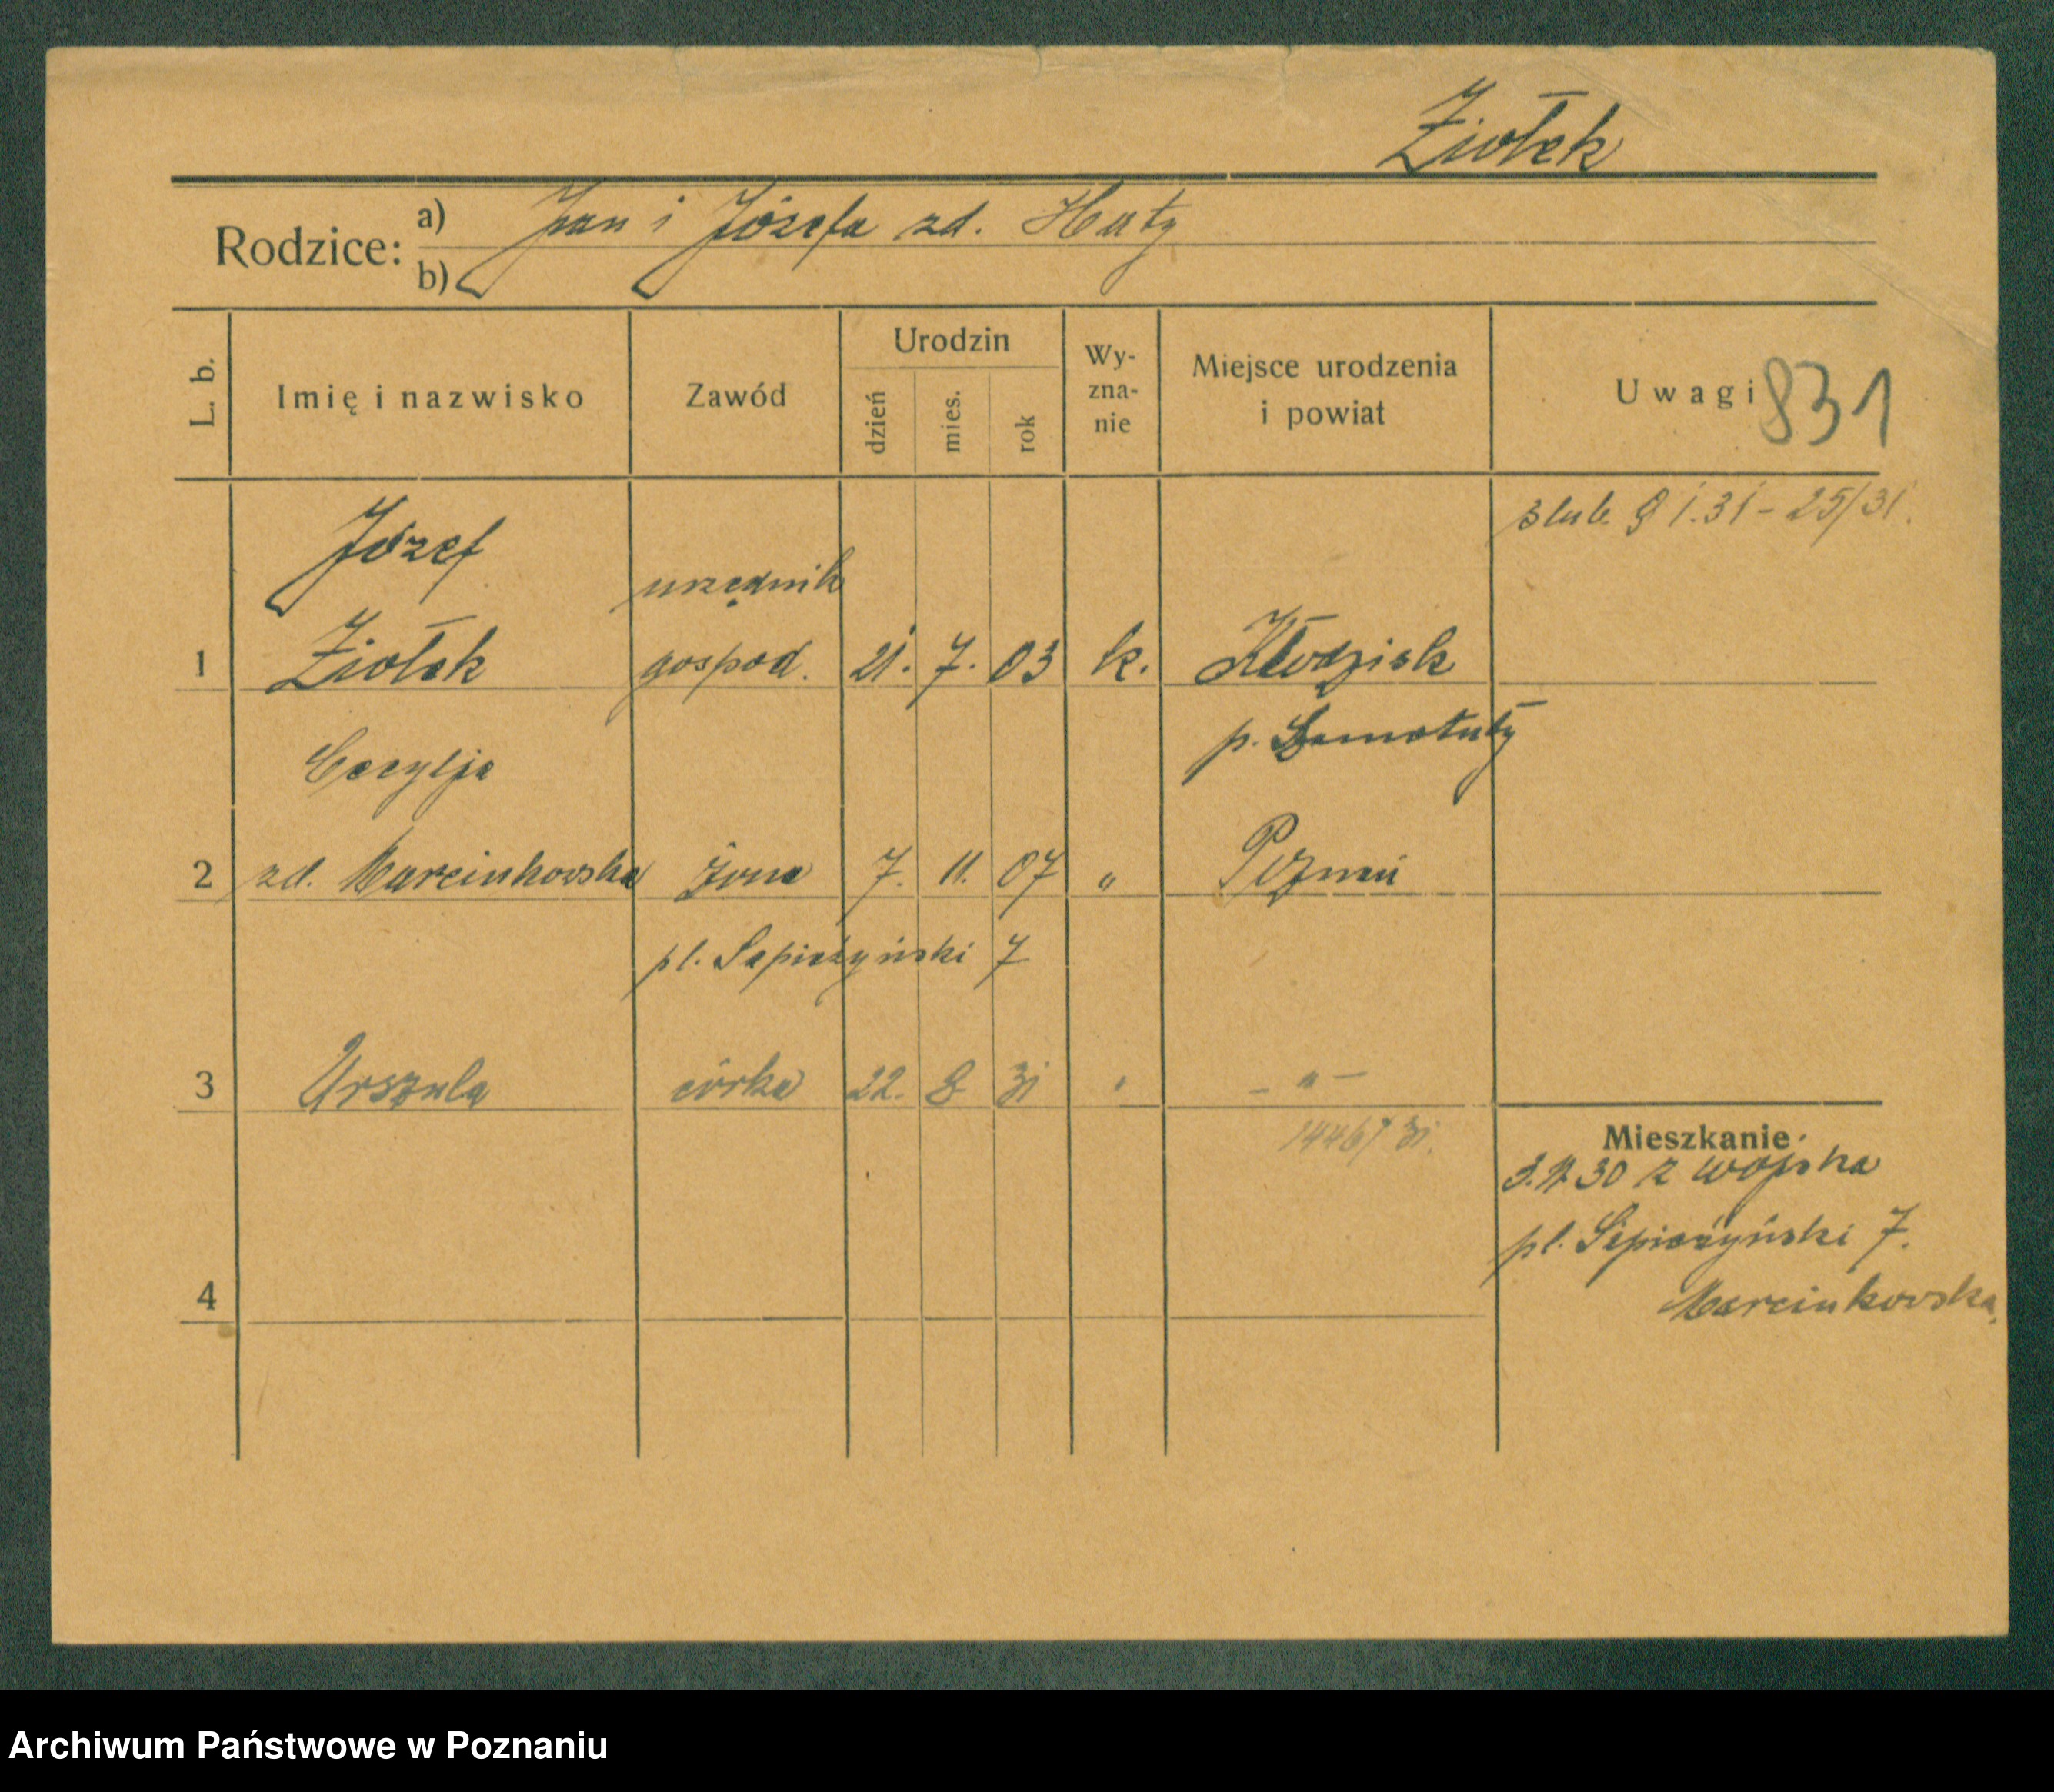 Ziołek
Rodzice: a) Jan i Józefa zd. Huty
b)
L. b. Imię i nazwisko Zawód Urodzin dzień mies. rok Wy-zna-nie Miejsce urodzenia i powiat Uwagi 831
ślub. 9 1.31 - 25/31.
Józef
urzędnik
1 Ziołek gospod. 21. 7. 03 k. Kłodzisk
p. Szamotuły
Cecylja
2 zd. Marcinkowska żona 7. 11. 07 „ Poznań
pl. Sapieżyński 7
3 Urszula córka 22. 8 31 „ - „ -
1446/31.
Mieszkanie
30 z wojska
pl. Sapieżyński 7.
4
Marcinkowska
Archiwum Państwowe w Poznaniu